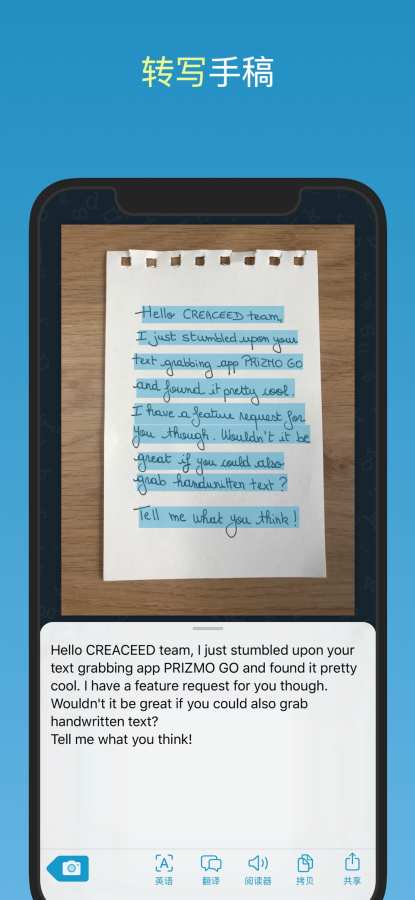 转写手稿
Hello CREACEED team,
I just stumbled upon your
text grabbing app PRIZMO GO
and found it pretty cool.
I have a feature request for
you though. Wouldn't it be
great if you could also
grab handwritten text?
Tell me what you think!
Hello CREACEED team, I just stumbled upon your
text grabbing app PRIZMO GO and found it pretty
cool. I have a feature request for you though.
Wouldn't it be great if you could also grab
handwritten text?
Tell me what you think!
英语 翻译 阅读器 拷贝 共享